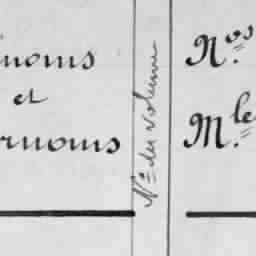 noms
et
rnoms
Nº des volume
Nos.
Mle.